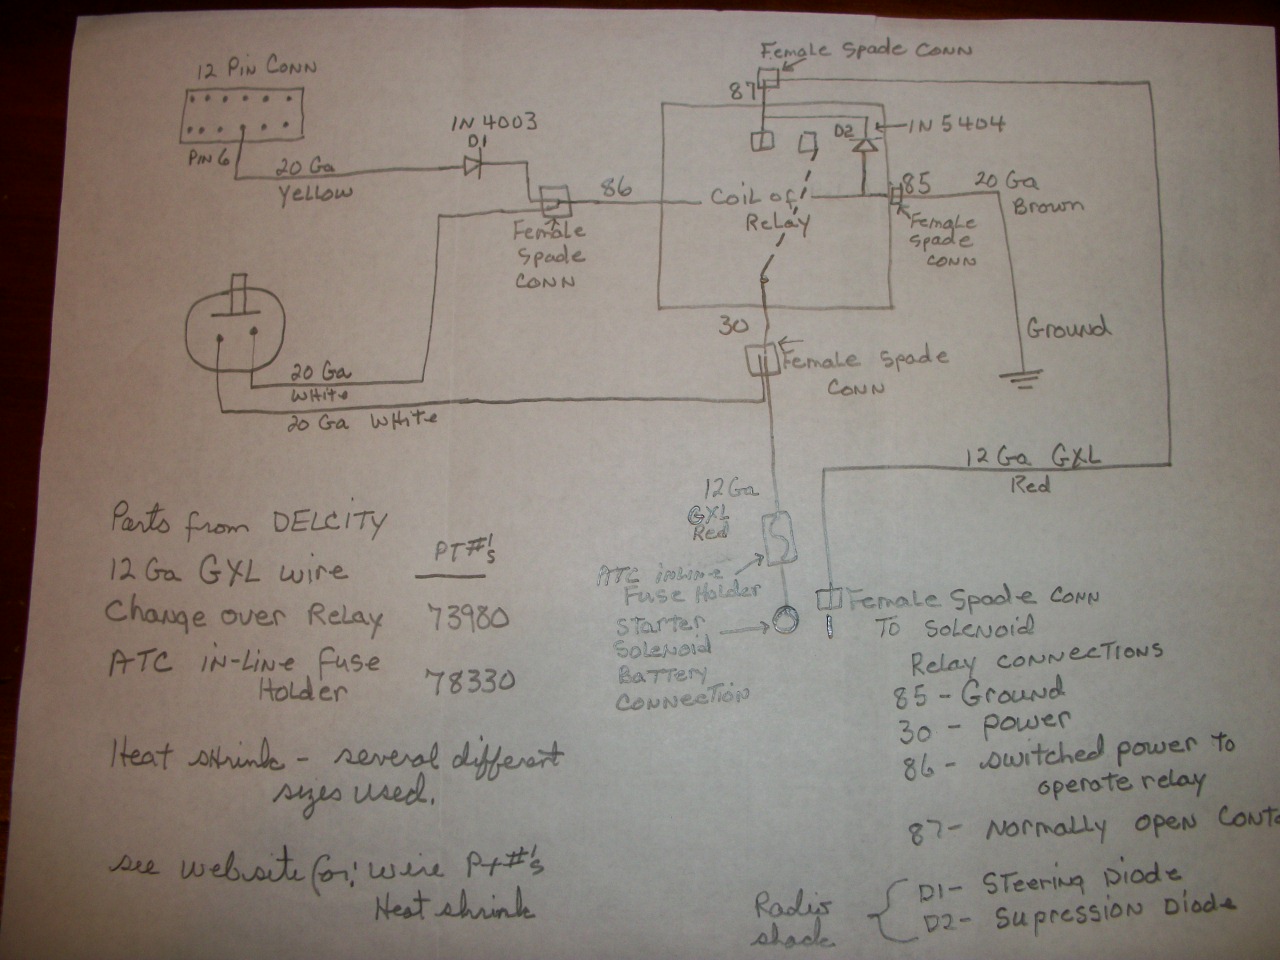 12 Pin Conn
Pin 6
20 Ga
Yellow
IN 4003
D1
86
Female
Spade
Conn
Female Spade Conn
87
D2
IN 5404
Coil of
Relay
85
20 Ga
Brown
Female
Spade
Conn
Ground
30
Female Spade
Conn
20 Ga
White
20 Ga White
12 Ga GXL
Red
12 Ga
GXL
Red
ATC inline
Fuse Holder
Starter
Solenoid
Battery
Connection
Female Spade Conn
To Solenoid
Relay Connections
85 - Ground
30 - power
86 - switched power to
operate relay
87 - Normally open
Parts from DELCITY
PT#'s
12 Ga GXL wire
Change over Relay 73980
ATC in-line fuse
Holder 78330
Heat shrink - several different
sizes used.
see website for: wire Pt#'s
Heat shrink
Radio
shack
D1 - Steering Diode
D2 - Supression Diode